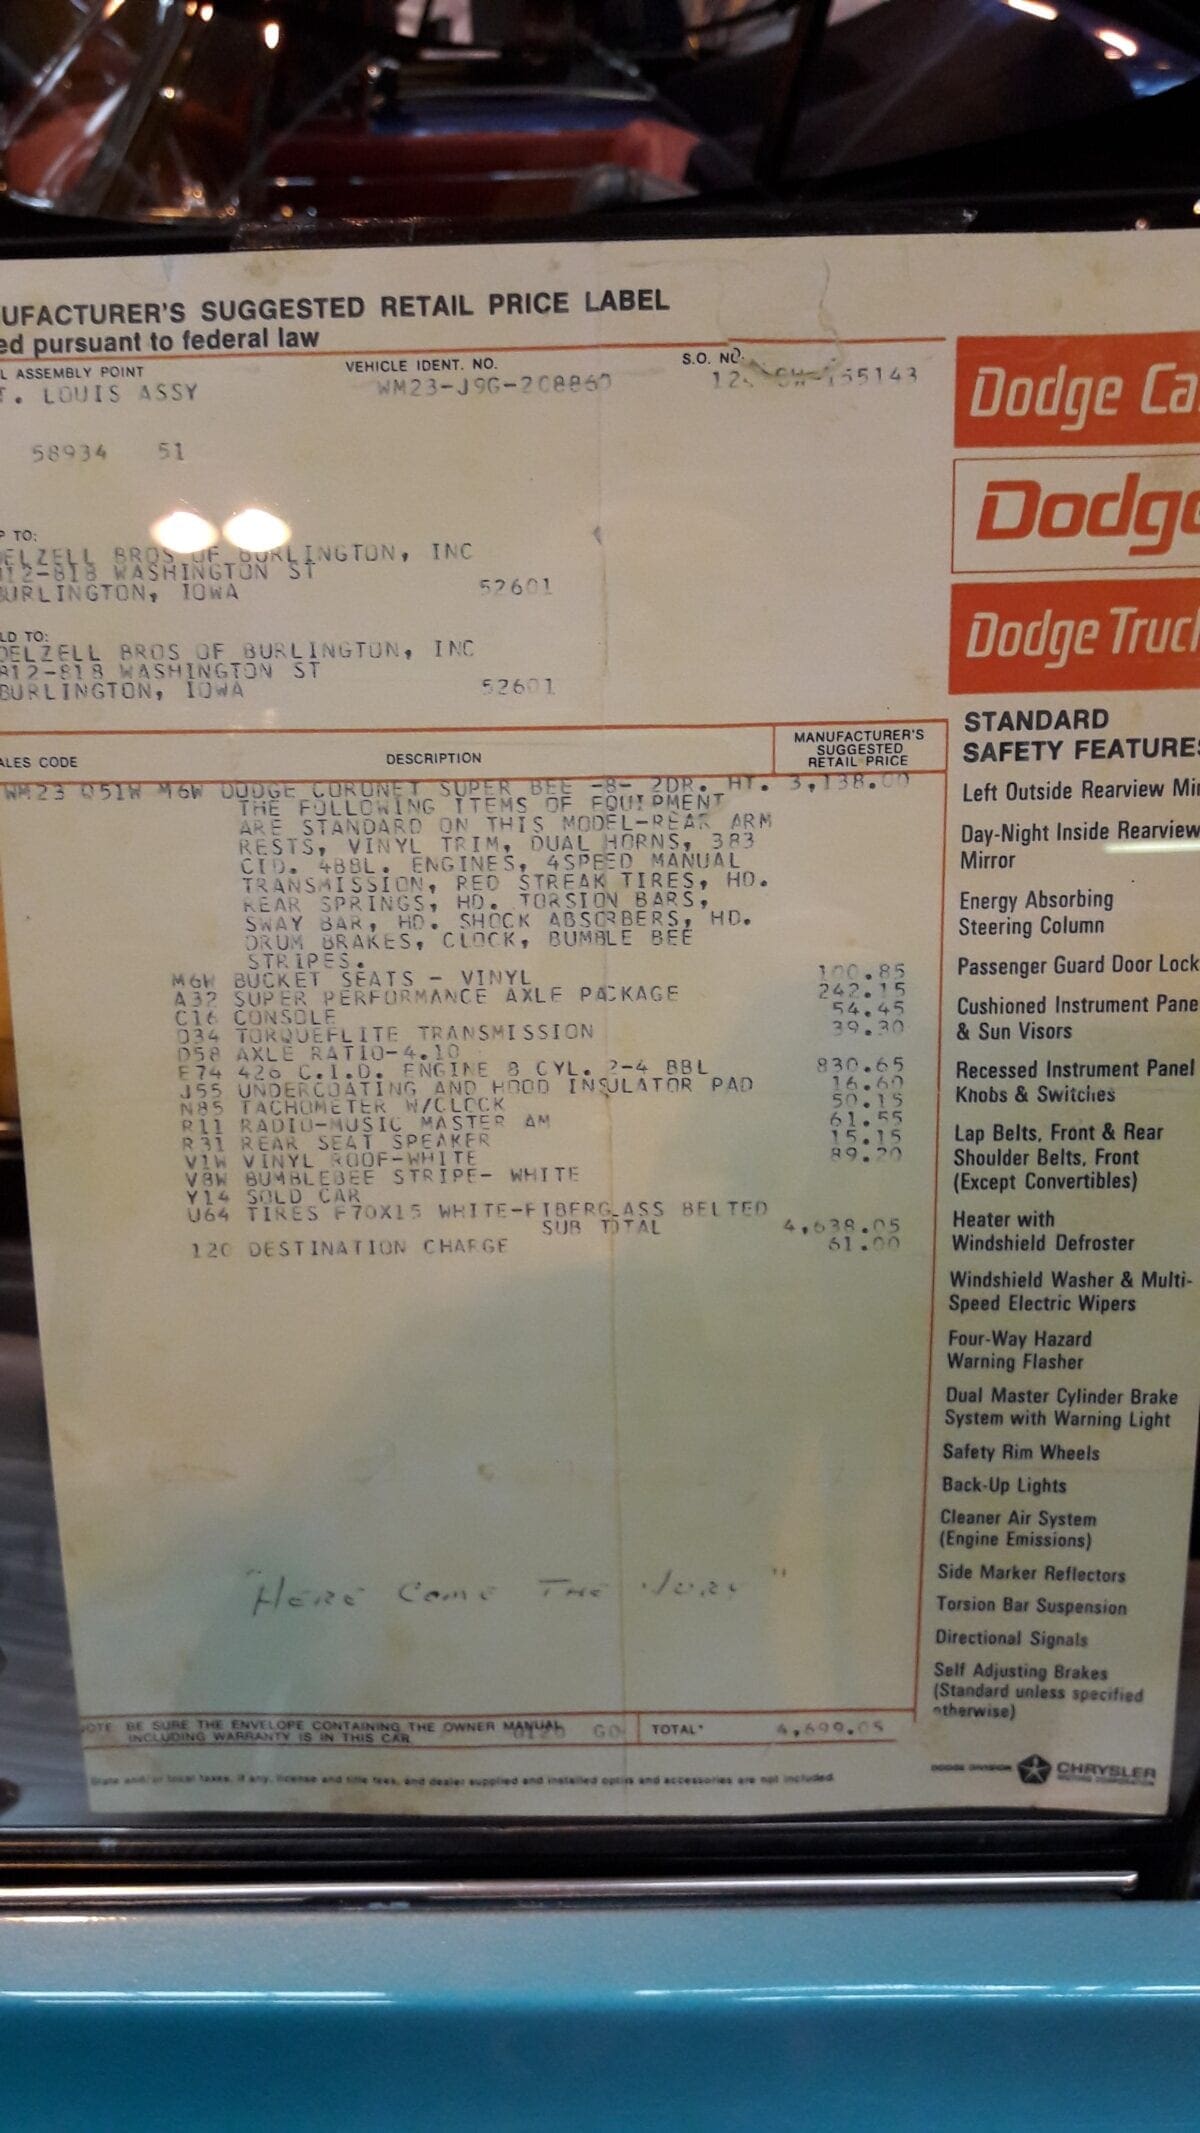 UFACTURER'S SUGGESTED RETAIL PRICE LABEL
ed pursuant to federal law
L ASSEMBLY POINT
VEHICLE IDENT. NO.
S.O. NO.
T. LOUIS ASSY
WM23-J9G-208860
155143
58934 51
P TO:
DELZELL BROS OF BURLINGTON, INC
812-818 WASHINGTON ST
BURLINGTON, IOWA 52601
LD TO:
DELZELL BROS OF BURLINGTON, INC
812-818 WASHINGTON ST
BURLINGTON, IOWA 52601
ALES CODE
DESCRIPTION
MANUFACTURER'S
SUGGESTED
RETAIL PRICE
WM23 Q51W M6W DODGE CORONET SUPER BEE -8- 2DR. HT. 3,138.00
THE FOLLOWING ITEMS OF EQUIPMENT
ARE STANDARD ON THIS MODEL-REAR ARM
RESTS, VINYL TRIM, DUAL HORNS, 383
CID. 4BBL. ENGINES, 4SPEED MANUAL
TRANSMISSION, RED STREAK TIRES, HD.
REAR SPRINGS, HD. TORSION BARS,
SWAY BAR, HD. SHOCK ABSORBERS, HD.
DRUM BRAKES, CLOCK, BUMBLE BEE
STRIPES.
M6W BUCKET SEATS - VINYL 100.85
A32 SUPER PERFORMANCE AXLE PACKAGE 242.15
C16 CONSOLE 54.45
D34 TORQUEFLITE TRANSMISSION 39.30
D58 AXLE RATIO-4.10
E74 426 C.I.D. ENGINE 8 CYL. 2-4 BBL 830.65
J55 UNDERCOATING AND HOOD INSULATOR PAD 16.60
N85 TACHOMETER W/CLOCK 50.15
R11 RADIO-MUSIC MASTER AM 61.55
R31 REAR SEAT SPEAKER 15.15
V1W VINYL ROOF-WHITE 89.20
V8W BUMBLEBEE STRIPE- WHITE
Y14 SOLD CAR
U64 TIRES F70X15 WHITE-FIBERGLASS BELTED
SUB TOTAL 4,638.05
120 DESTINATION CHARGE 61.00
"HERE COME THE
NOTE: BE SURE THE ENVELOPE CONTAINING THE OWNER MANUAL
INCLUDING WARRANTY IS IN THIS CAR
TOTAL* 4,699.05
State and/or local taxes, if any, license and title fees, and dealer supplied and installed options and accessories are not included.
Dodge Ca
Dodge
Dodge Truc
STANDARD
SAFETY FEATURES
Left Outside Rearview Mir
Day-Night Inside Rearview
Mirror
Energy Absorbing
Steering Column
Passenger Guard Door Lock
Cushioned Instrument Pane
& Sun Visors
Recessed Instrument Panel
Knobs & Switches
Lap Belts, Front & Rear
Shoulder Belts, Front
(Except Convertibles)
Heater with
Windshield Defroster
Windshield Washer & Multi-
Speed Electric Wipers
Four-Way Hazard
Warning Flasher
Dual Master Cylinder Brake
System with Warning Light
Safety Rim Wheels
Back-Up Lights
Cleaner Air System
(Engine Emissions)
Side Marker Reflectors
Torsion Bar Suspension
Directional Signals
Self Adjusting Brakes
(Standard unless specified
otherwise)
DODGE DIVISION
CHRYSLER
MOTORS CORPORATION